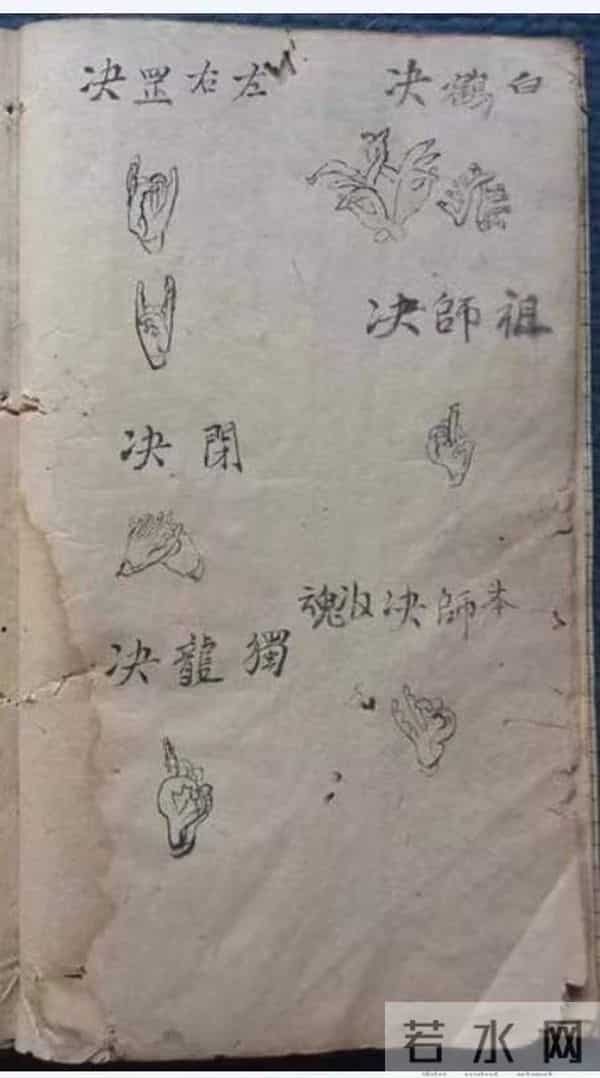 白鶴决
祖師决
本師决収魂
左右罡决
閉决
獨龍决
若水网